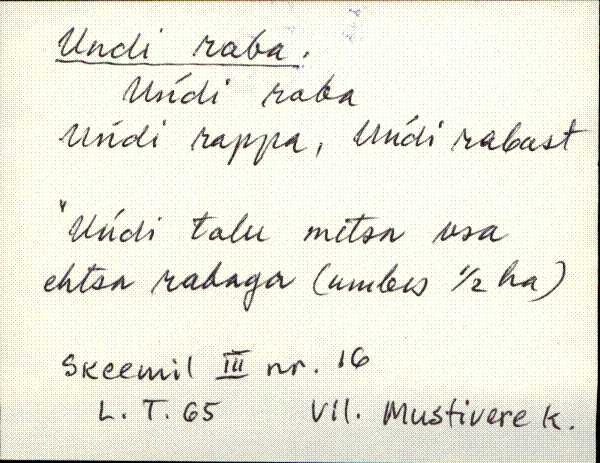 Undi raba.
Uńdi raba
Uńdi rappa, Uńdi rabast
"Uńdi talu metsa osa
ehtsa rabaga (umbes 1/2 ha)
Skeemil III nr. 16
L. T. 65 Vil. Mustivere k.